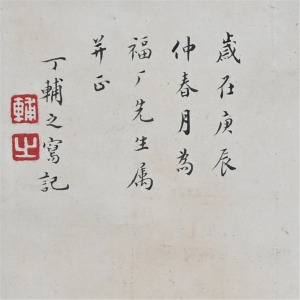 歲在庚辰
仲春月為
福厂先生属
并正
丁輔之寫記
輔
之